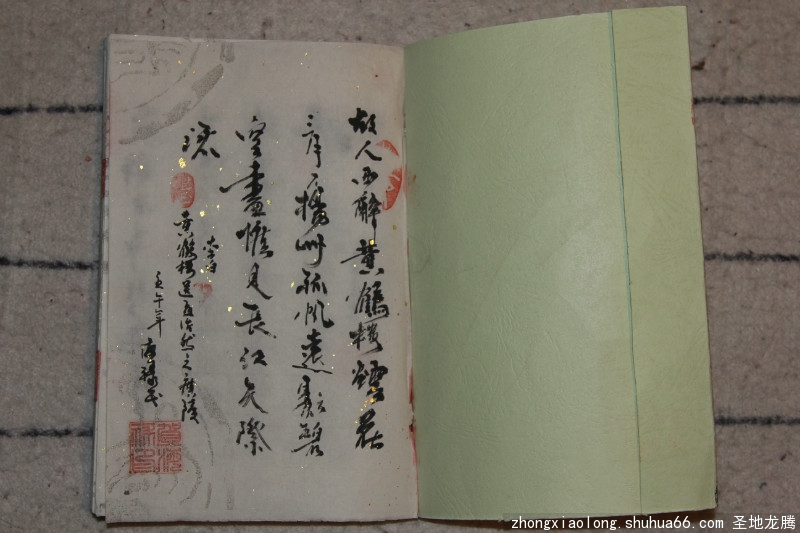 故人西辭黄鶴楼煙花
三月下揚州孤帆遠影碧
空盡惟見長江天際
流
李白
黄鶴楼送孟浩然之廣陵
壬午年
zhongxiaolong.shuhua66.com 圣地龙腾